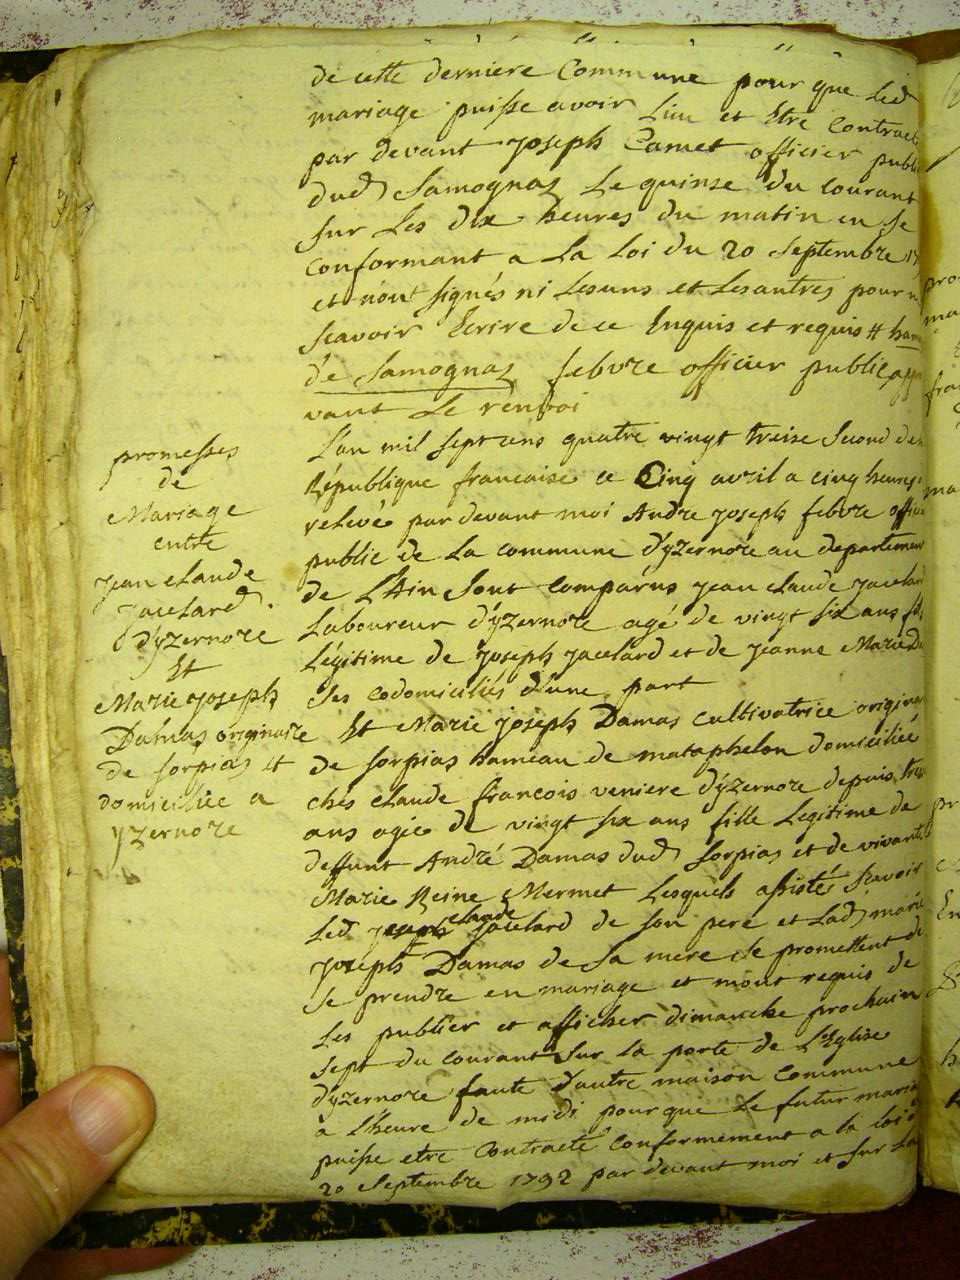 de cette derniere Commune pour que led
mariage puisse avoir Lieu et Etre Contract
par devant joseph Camet officier publi
dud Samognaz Le quinse du courant
sur Les dix heures du matin en se
conformant a La Loi du 20 septembre 17
et n'ont signés ni Lesuns et Lesautres pour n
scavoir Ecrire de ce Enquis et requis # ham
de Samognaz febvre officier public app
vant Le renvoi
promesses
de
Mariage
entre
jean claude
jacelard
d'yzernore
Et
Marie joseph
Damas originaire
de sorpias et
domiciliée a
yzernore
L'an mil sept cens quatre vingt treise second de
République francaise ce Cinq avril a cinq heures
relevé par devant moi André joseph febvre offic
public de La commune d'yzernore au departement
de L'Ain sont comparus jean claude jacelard
Laboureur d'yzernore agé de vingt six ans fils
Légitime de joseph jacelard et de jeanne Marie Du
ses codomiciliés d'une part
Et Marie joseph Damas cultivatrice origina
de sorpias hameau de mataphelon domiciliée
chés claude francois veniere d'yzernore depuis trei
ans agée de vingt six ans fille Legitime de
deffunt André Damas dud sorpias et de vivante
Marie Reine Mermet Lesquels assistés scavoir
Led jean claude jacelard de son pere et Lad marie
joseph Damas de sa mere se promettent de
se prendre en mariage et m'ont requis de
Les publier et afficher dimanche prochain
sept du courant sur la porte de L'Eglise
d'yzernore faute d'autre maison commune
a L'heure de midi pour que Le futur maria
puisse etre Contracté conformement a la loi d
20 septembre 1792 par devant moi et sur La